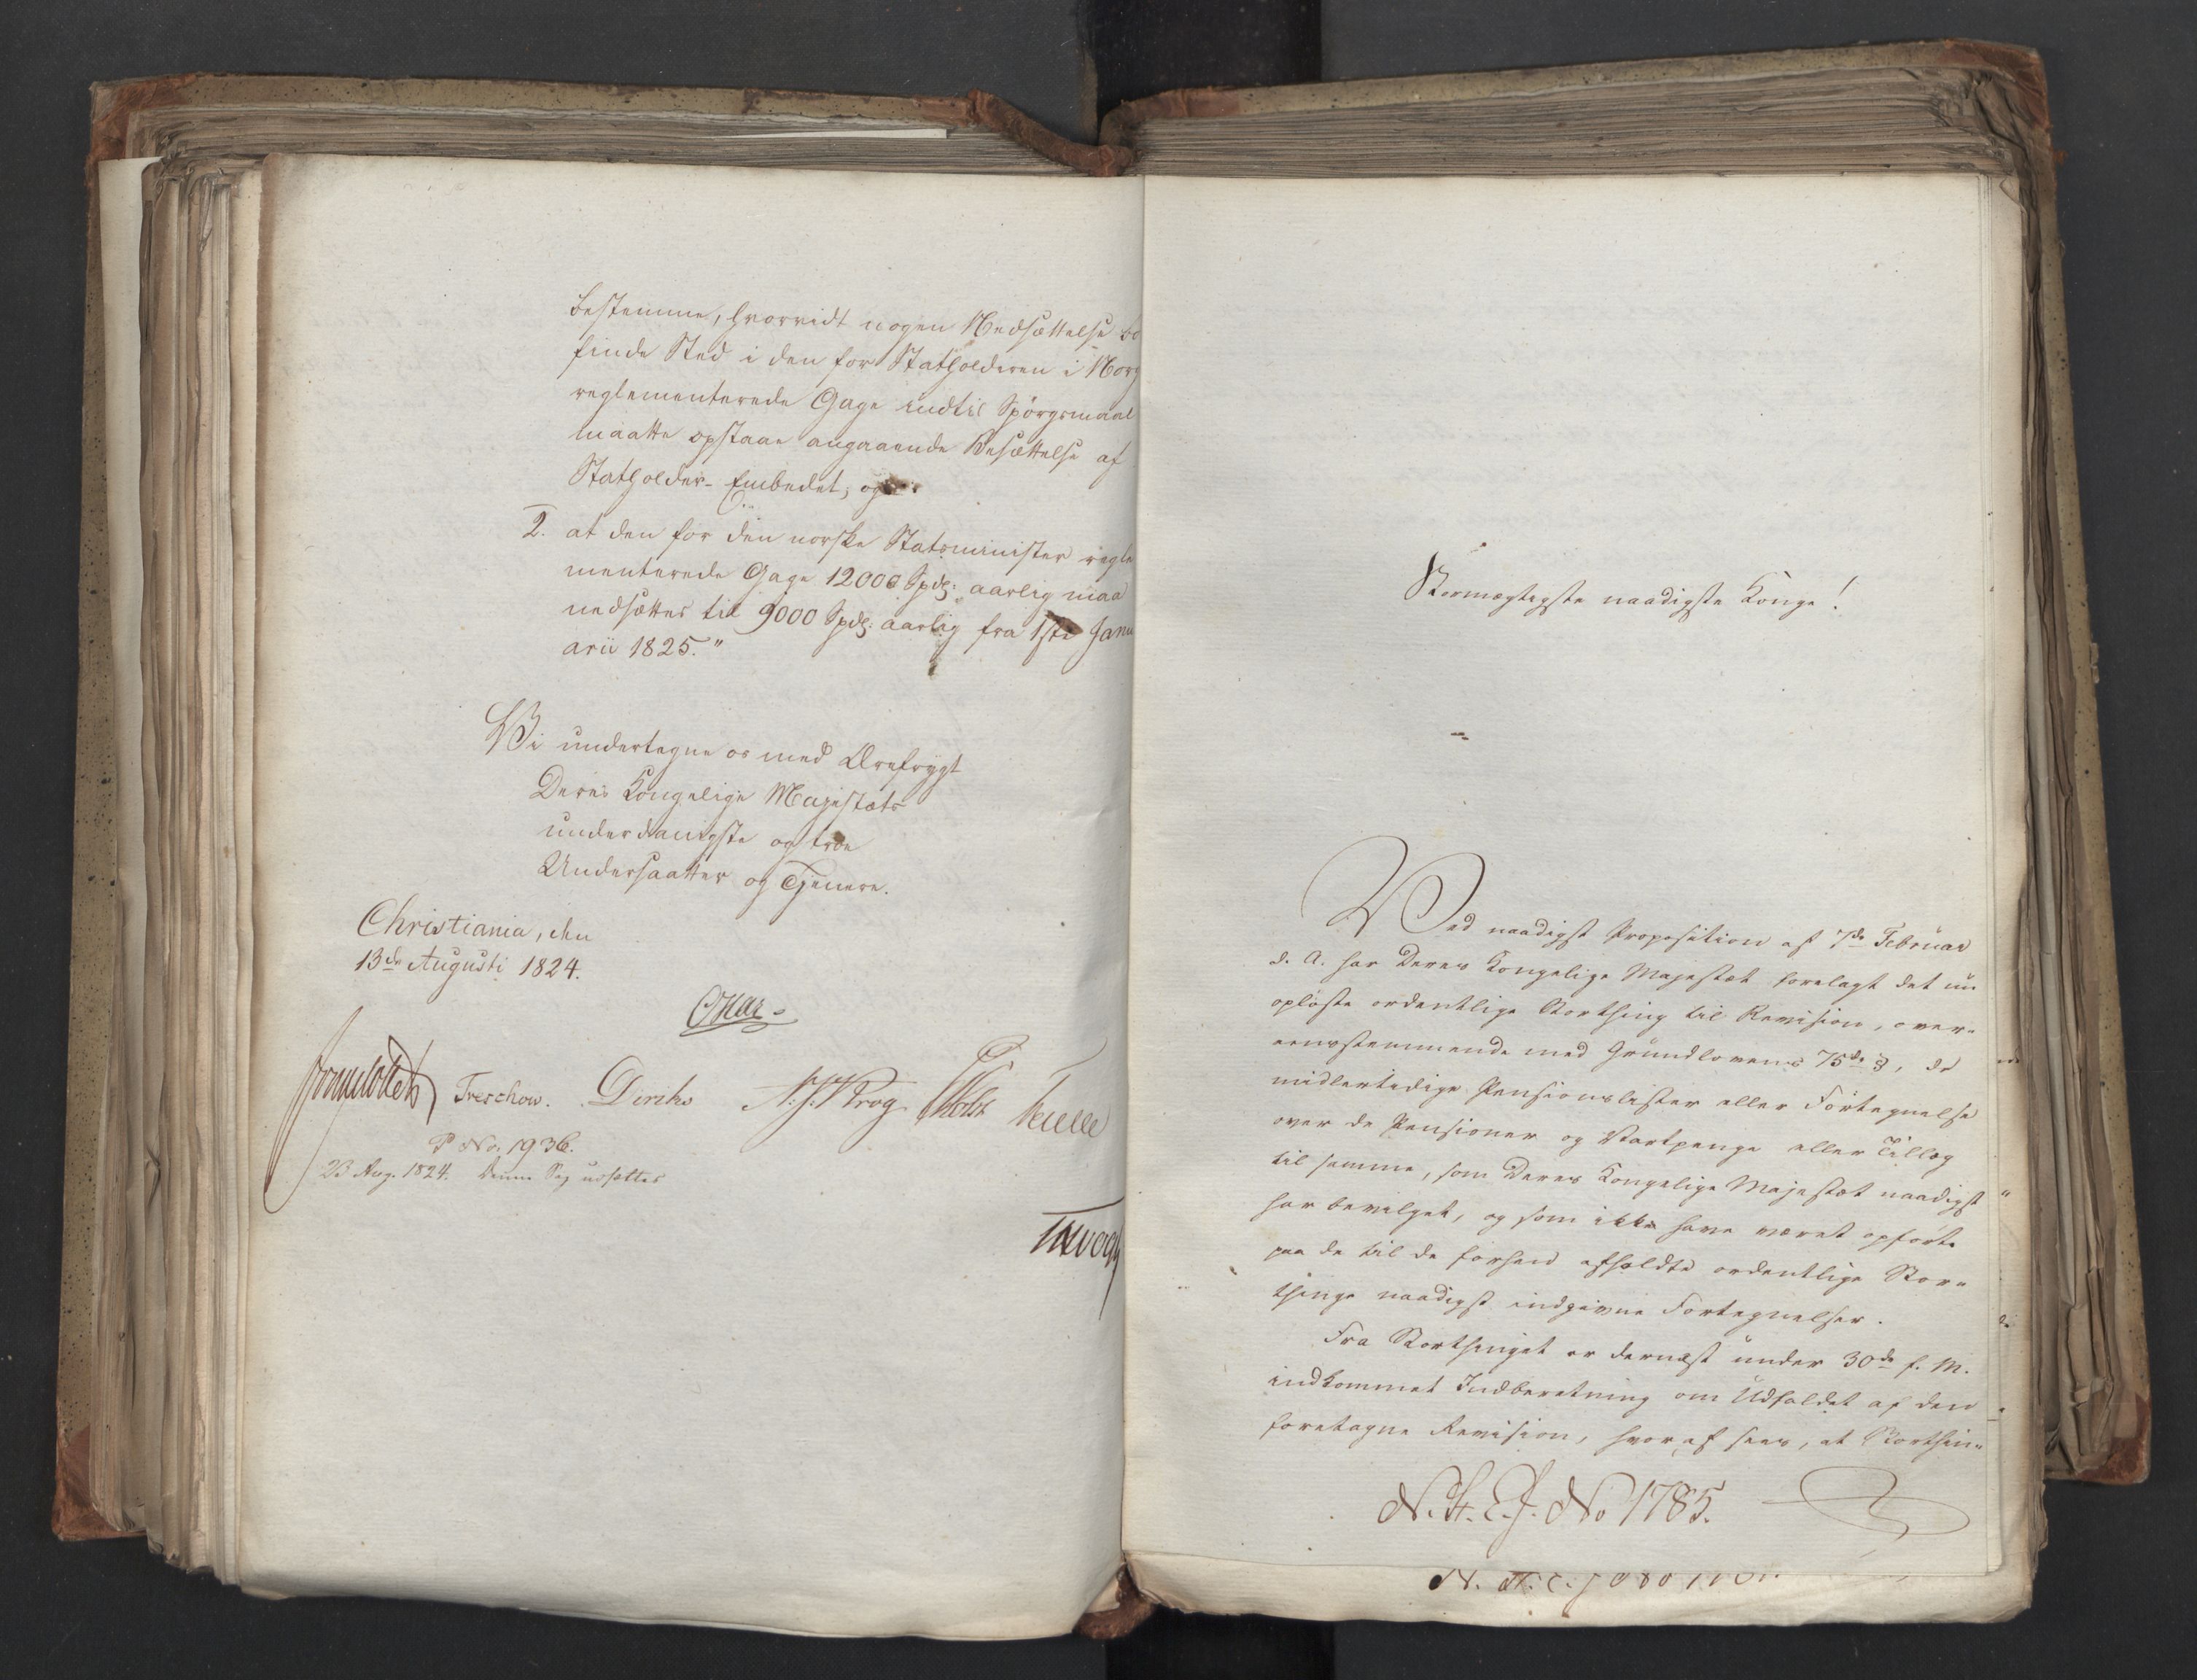 bestemme, hvorvidt nogen Nedsættelse bö
finde Sted i den for Statholderen i Norg
reglementerede Gage indtil Spörgsmaal
maatte opstaae angaaende Besættelse af
Statholder-Embedet; og
2. at den for den norske Statsminister regle
menterede Gage 12000 Spds: aarlig maa
nedsættes til 9000 Spds: aarlig fra 1ste Janu
arii 1825."
Vi undertegne os med Ærefrygt
Deres Kongelige Majestæts
underdanigste og troe
Undersaatter og Tjenere.
Christiania, den
13de Augusti 1824.
Oscar
Sommerfeldt Treschow. Diriks A. J. Krog Holst
P No. 1936.
23 Aug. 1824. Denne Sag udsættes
Stormægtigste naadigste Konge!
Ved naadigst Proposition af 7de Februar
d. A. har Deres Kongelige Majestæt forelagt det nu
oplöste ordentlige Storthing til Revision, over-
eensstemmende med Grundlovens 75de §, de
midlertidige Pensionslister eller Fortegnelse
over de Pensioner og Vartpenge eller Tillæg
til samme, som Deres Kongelige Majestæt naadigst
har bevilget, og som ikke have været opförte
paa de til de forhen afholdte ordentlige Stor-
thinge naadigst indgivne Fortegnelser.
Fra Storthinget er dernæst under 30de f. M.
indkommet Indberetning om Udfaldet af den
foretagne Revision, hvoraf sees, at Storthin-
N. H. E. J. No 1785.